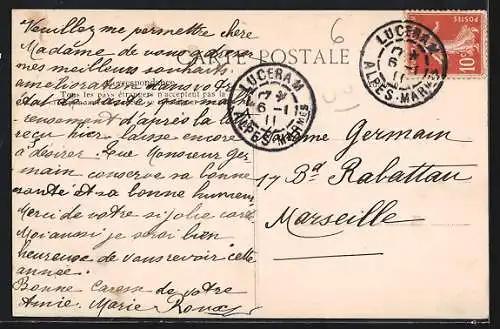 Veuillez me permettre chère
Madame de vous adresser
mes meilleurs souhaits
CARTE POSTALE
Correspondance
Tous les pays étrangers n'acceptent pas la
amélioration dans votre
état de santé qui ma
d'après la
reçu hier laisse encore
à désirer. Que Monsieur Ger
main conserve sa bonne
santé et sa bonne humeur
Merci de votre si jolie carte
Moi aussi je serai bien
heureuse de vous voir cette
année.
Bonne Caresse de votre
Amie. Marie
6
LUCERAM
6 -1
11
ALPES-MARMES
LUCERAM
6 -1
11
ALPES-MARMES
POSTES
10c
Germain
17 Bd Rabattau
Marseille